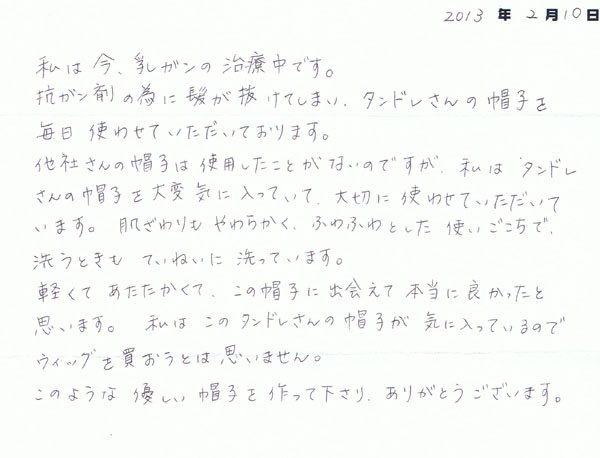 2013 年 2 月 10 日
私は今、乳ガンの治療中です。
抗ガン剤の為に髪が抜けてしまい、タンドレさんの帽子を
毎日使わせていただいております。
他社さんの帽子は使用したことがないのですが、私はタンドレ
さんの帽子を大変気に入っていて、大切に使わせていただいて
います。肌ざわりもやわらかく、ふわふわとした使いごこちで、
洗うときもていねいに洗っています。
軽くてあたたかくて、この帽子に出会えて本当に良かったと
思います。私はこのタンドレさんの帽子が気に入っているので
ウィッグを買おうとは思いません。
このような優しい帽子を作って下さり、ありがとうございます。